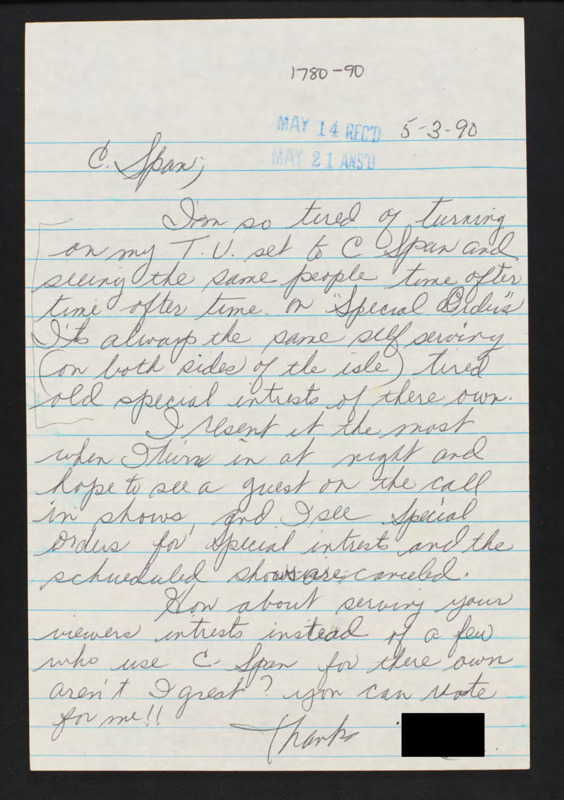 1780-90
MAY 14 REC'D 5-3-90
MAY 21 ANS'D
C. Span,
I'm so tired of turning
on my T.V. set to C Span and
seeing the same people time after
time after time. on "Special Orders"
It's always the same self serving
(on both sides of the isle) tired
old special intrests of there own.
I resent it the most
when I turn in at night and
hope to see a guest on the call
in shows, and I see Special
Orders for special intrests and the
schedualed shows are canceled.
How about serving your
viewers intrests instead of a few
who use C. Span for there own
aren't I great? you can vote
for me!!
Thanks